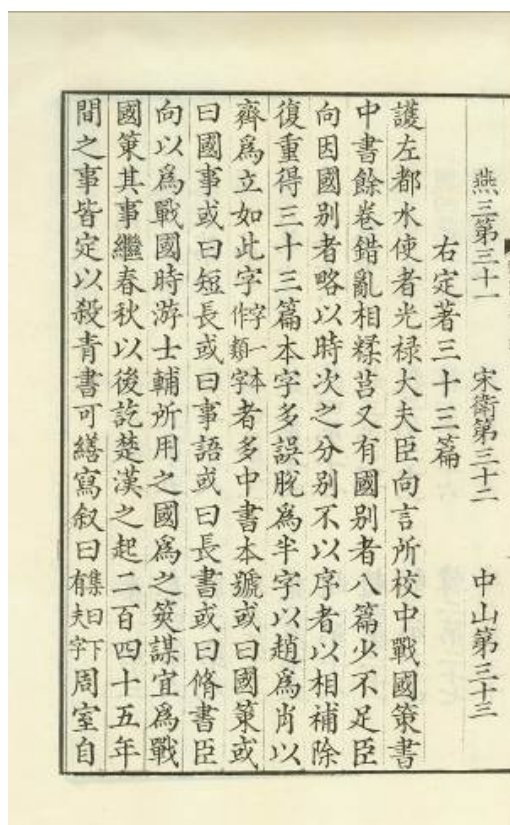 燕三第三十一　宋衛第三十二　中山第三十三
右定著三十三篇
護左都水使者光祿大夫臣向言所校中戰國策書
中書餘卷錯亂相糅莒又有國別者八篇少不足臣
向因國別者略以時次之分別不以序者以相補除
復重得三十三篇本字多誤脫爲半字以趙爲肖以
齊爲立如此字字一本作類字者多中書本號或曰國策或
曰國事或曰短長或曰事語或曰長書或曰脩書臣
向以爲戰國時游士輔所用之國爲之筴謀宜爲戰
國策其事繼春秋以後訖楚漢之起二百四十五年
間之事皆定以殺青書可繕寫叙曰集曰下有夫字周室自